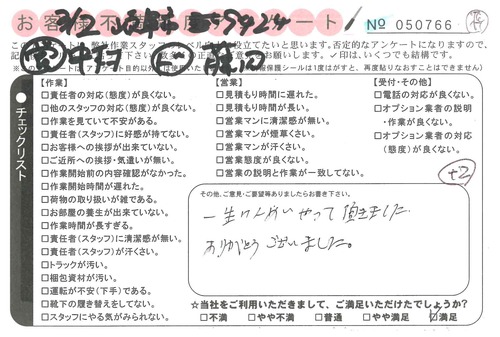 お客様不満足アンケート
№ 050766
チェックリスト
【作業】
□責任者の対応(態度)が良くない。
□他のスタッフの対応(態度)が良くない。
□作業を見ていて不安がある。
□責任者(スタッフ)に好感が持てない。
□お客様への挨拶が出来ていない。
□ご近所への挨拶・気遣いが無い。
□作業開始前の内容確認がなかった。
□作業開始時間が遅れた。
□荷物の取り扱いが雑である。
□お部屋の養生が出来ていない。
□作業時間が長すぎる。
□責任者(スタッフ)に清潔感が無い。
□責任者(スタッフ)が汗くさい。
□トラックが汚い。
□梱包資材が汚い。
□運転が不安(下手)である。
□靴下の履き替えをしてない。
□スタッフにやる気がみられない。
【営業】
□見積もり時間に遅れた。
□見積もり時間が長い。
□営業マンに清潔感が無い。
□営業マンが煙草くさい。
□営業マンが汗くさい。
□営業態度が良くない。
□営業の説明と作業が一致してない。
【受付・その他】
□電話の対応が良くない。
□オプション業者の説明
・作業が良くない。
□オプション業者の対応
(態度)が良くない。
+2
その他、ご意見・ご要望等ありましたらお書き下さい。
やって頂きました
ありがとうございました。
☆当社をご利用いただきまして、ご満足いただけたでしょうか?
□不満 □やや不満 □普通 □やや満足 □満足